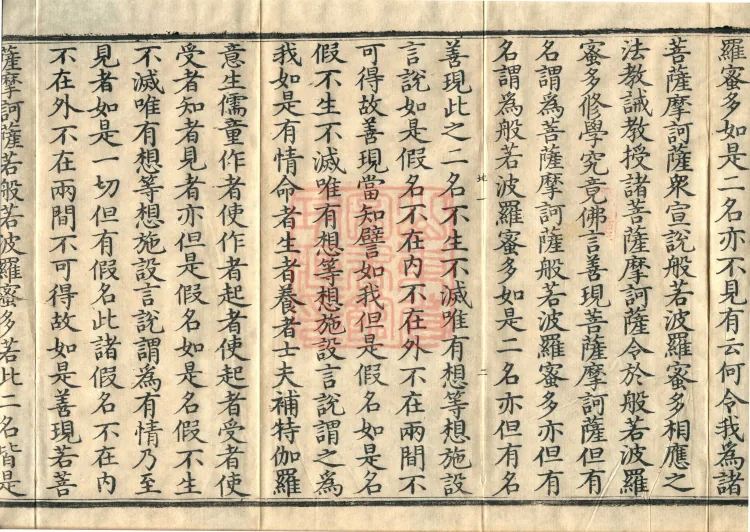 羅蜜多如是二名亦不見有云何令我為諸
菩薩摩訶薩衆宣説般若波羅蜜多相應之
法教誡教授諸菩薩摩訶薩令於般若波羅
蜜多修學究竟佛言善現菩薩摩訶薩但有
名謂為菩薩摩訶薩般若波羅蜜多亦但有
名謂為般若波羅蜜多如是二名亦但有名
善現此之二名不生不滅唯有想等想施設
言説如是假名不在内不在外不在兩間不
可得故善現當知譬如我但是假名如是名
假不生不滅唯有想等想施設言説謂之為
我如是有情命者生者養者士夫補特伽羅
意生儒童作者使作者起者使起者受者使
受者知者見者亦但是假名如是名假不生
不滅唯有想等想施設言説謂為有情乃至
見者如是一切但有假名此諸假名不在内
不在外不在兩間不可得故如是善現若菩
薩摩訶薩若般若波羅蜜多若此二名皆是